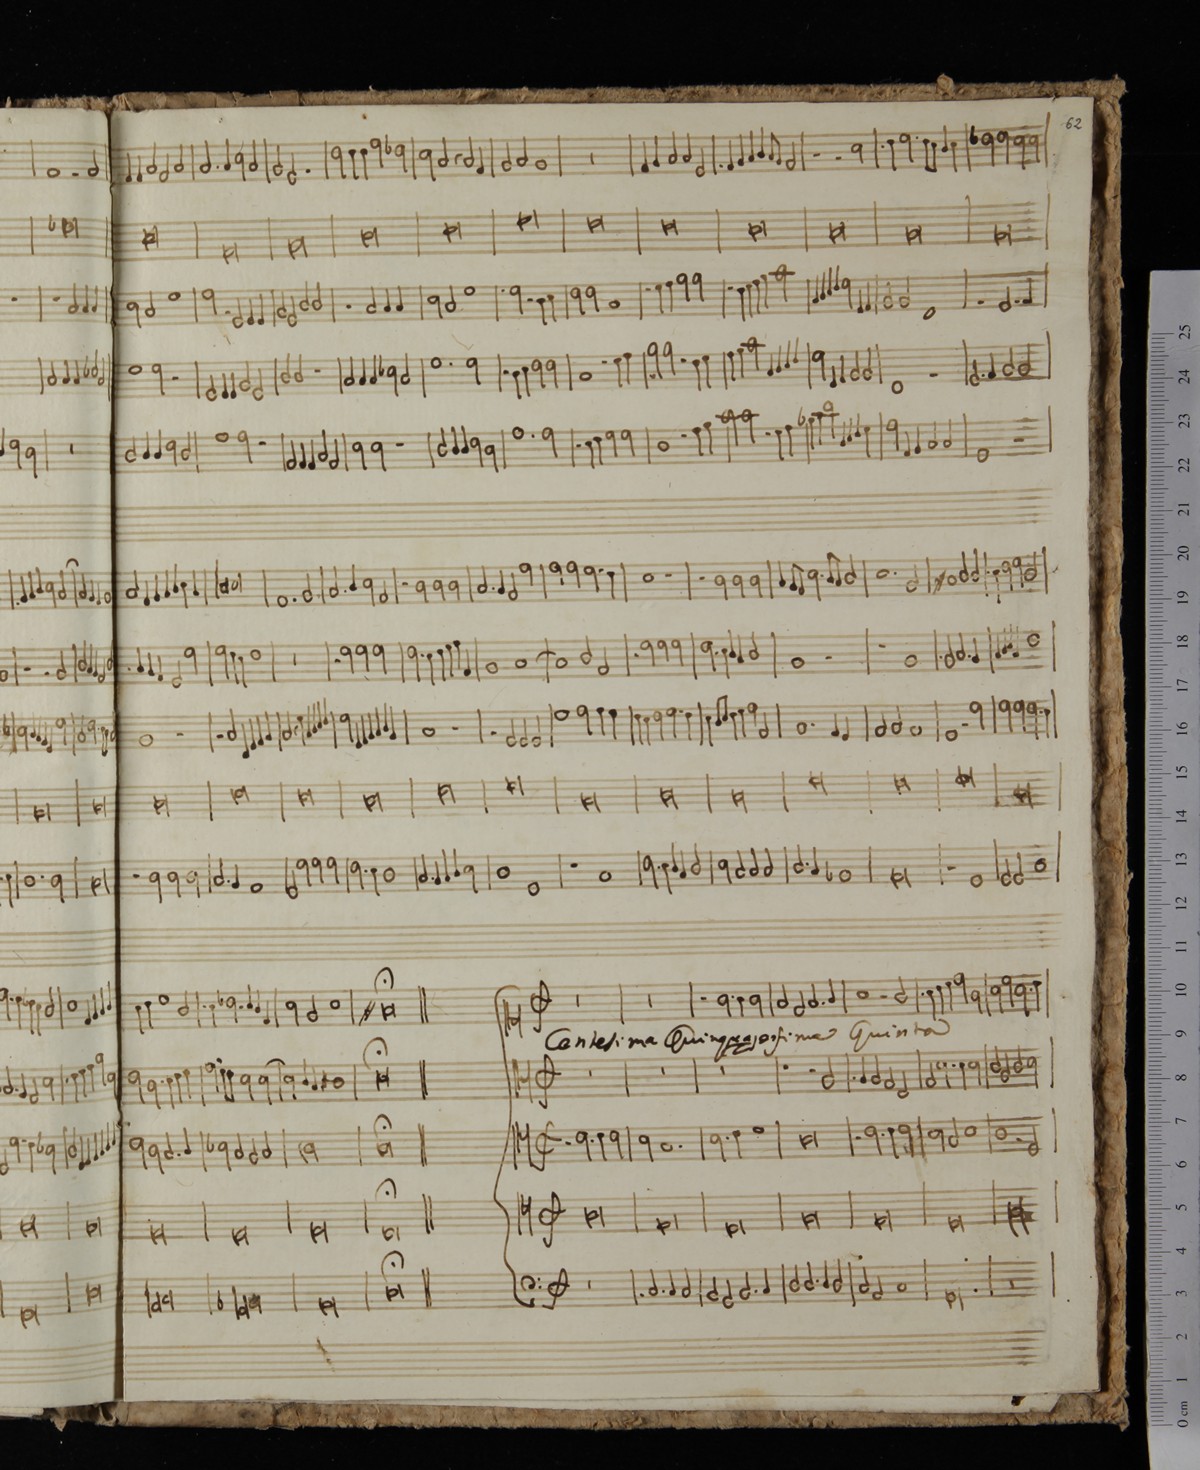 62
Centesima Quinquagesima Quinta
25
24
23
22
21
20
19
18
17
16
15
14
13
12
11
10
9
8
7
6
5
4
3
2
1
0 cm